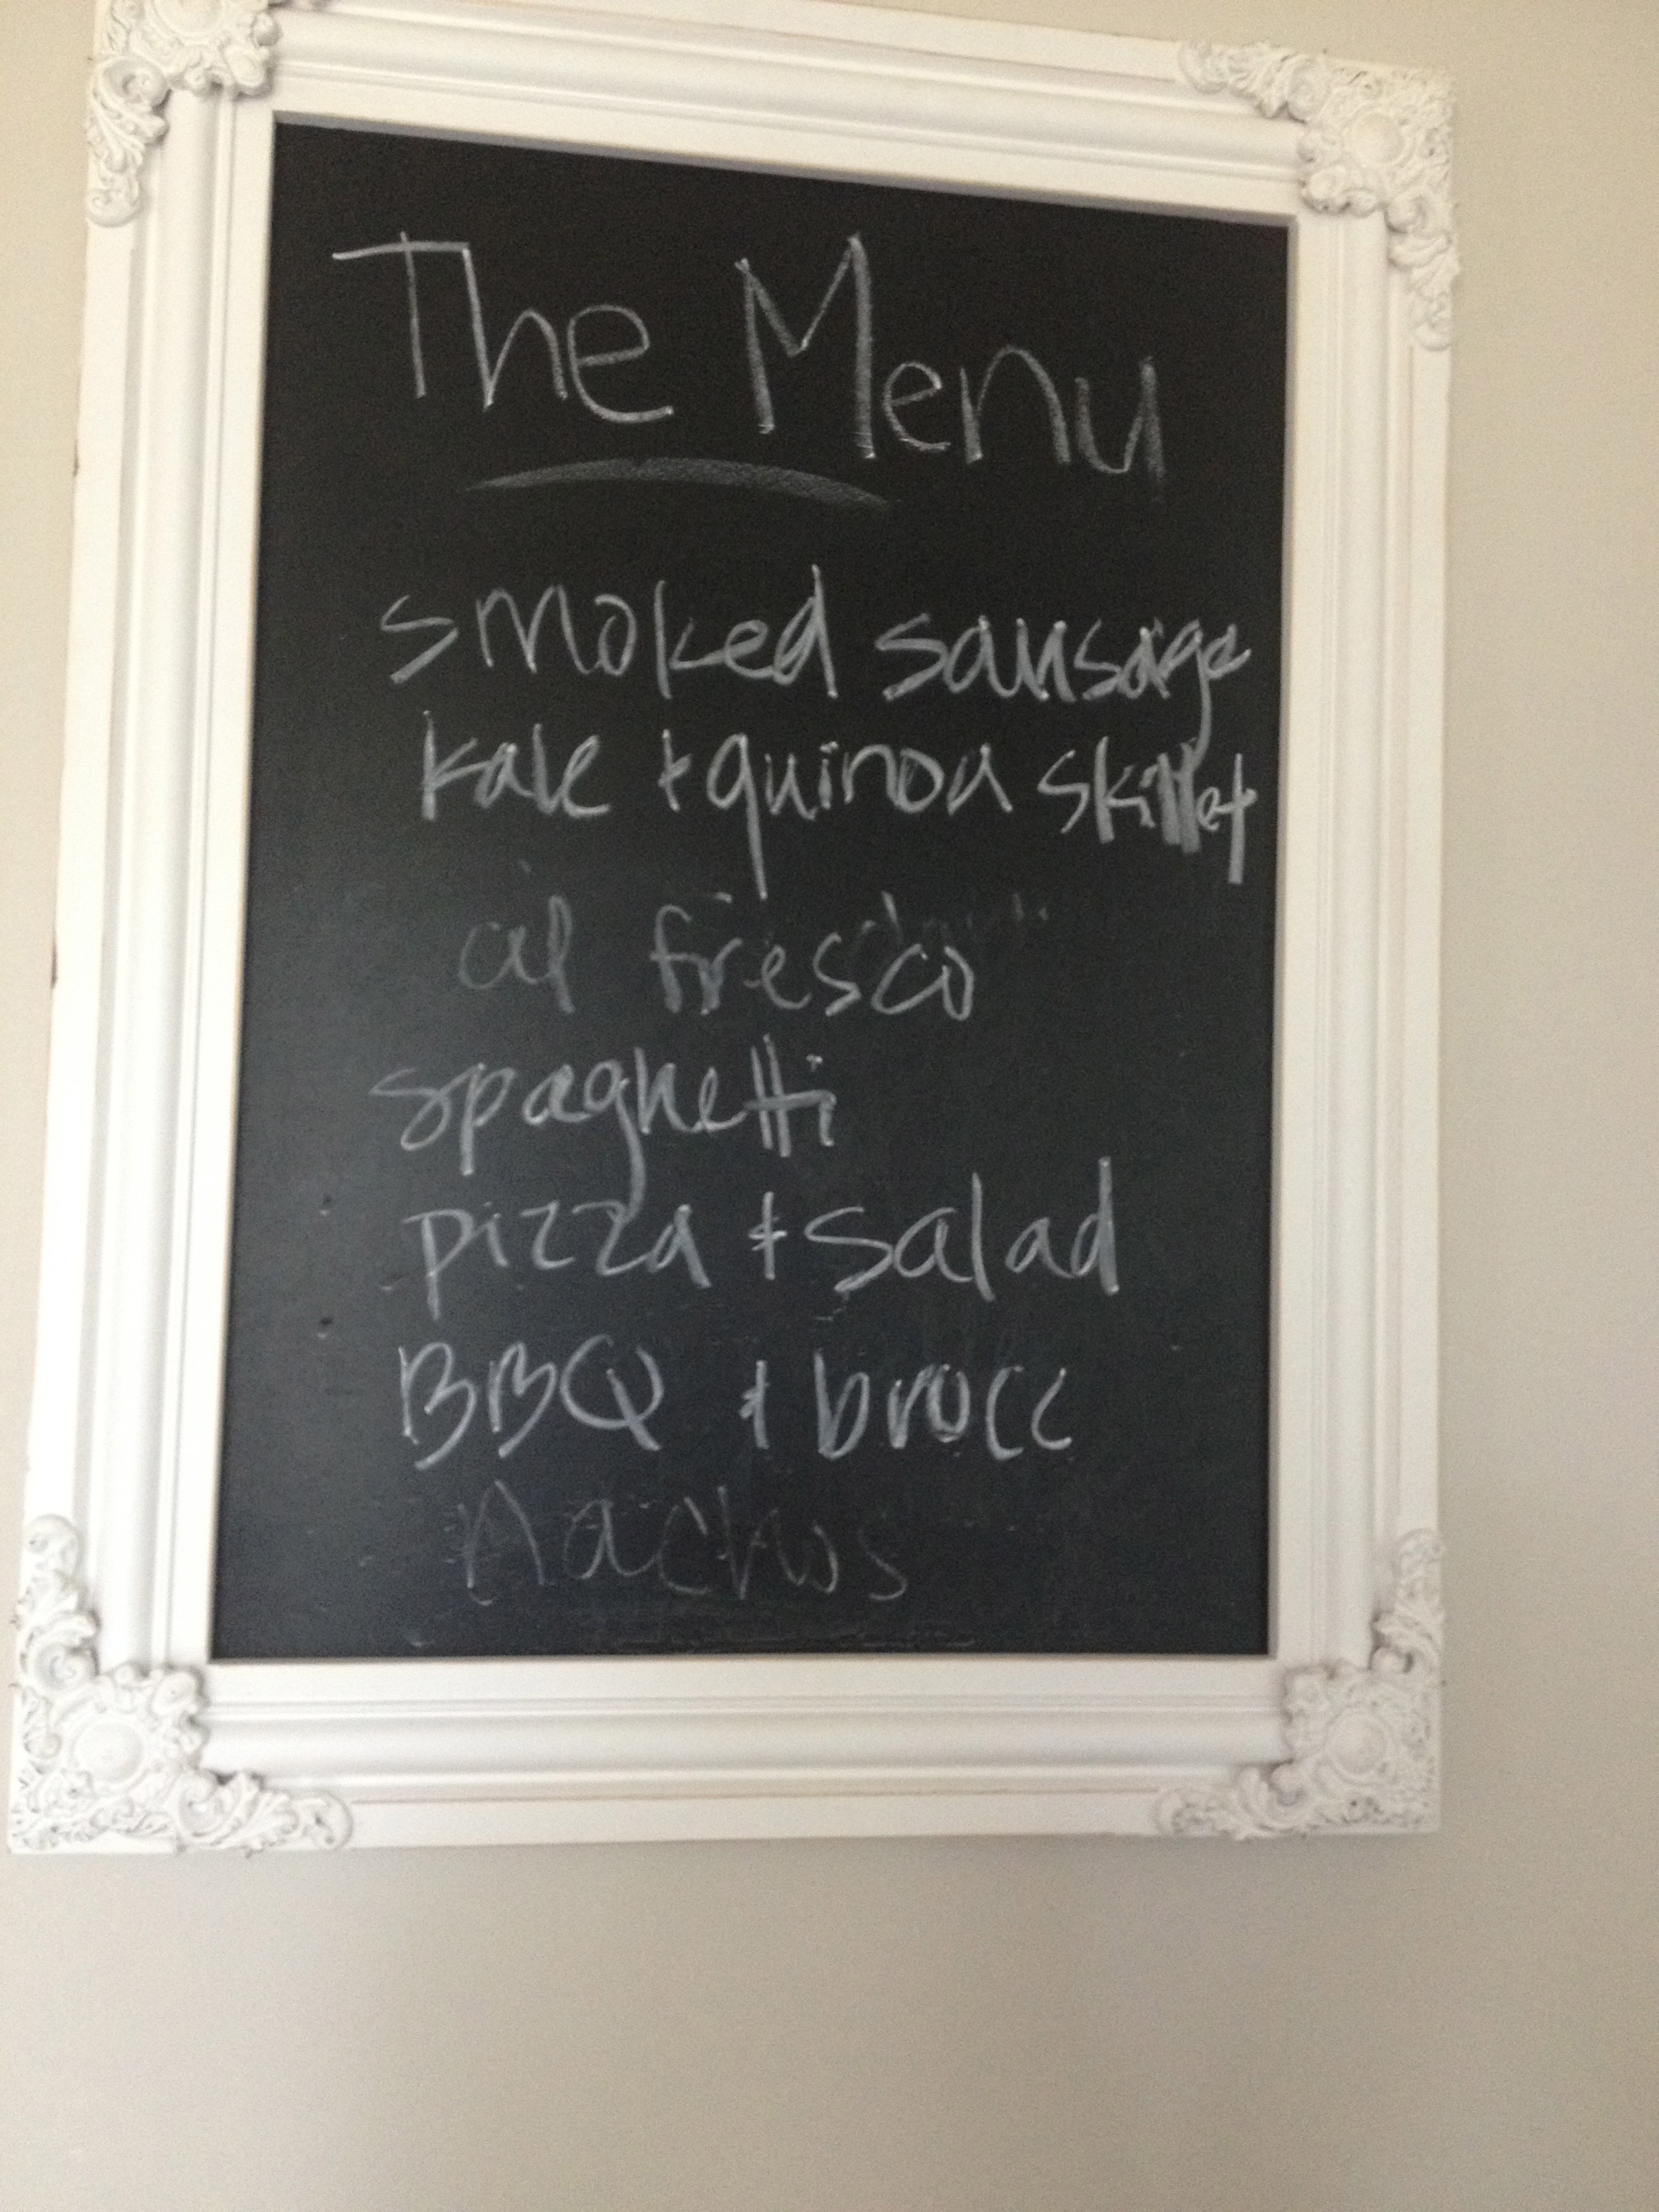 The Menu
smoked sausage
kale + quinoa skillet
al fresco
spaghetti
pizza + salad
BBQ + brocc
nachos